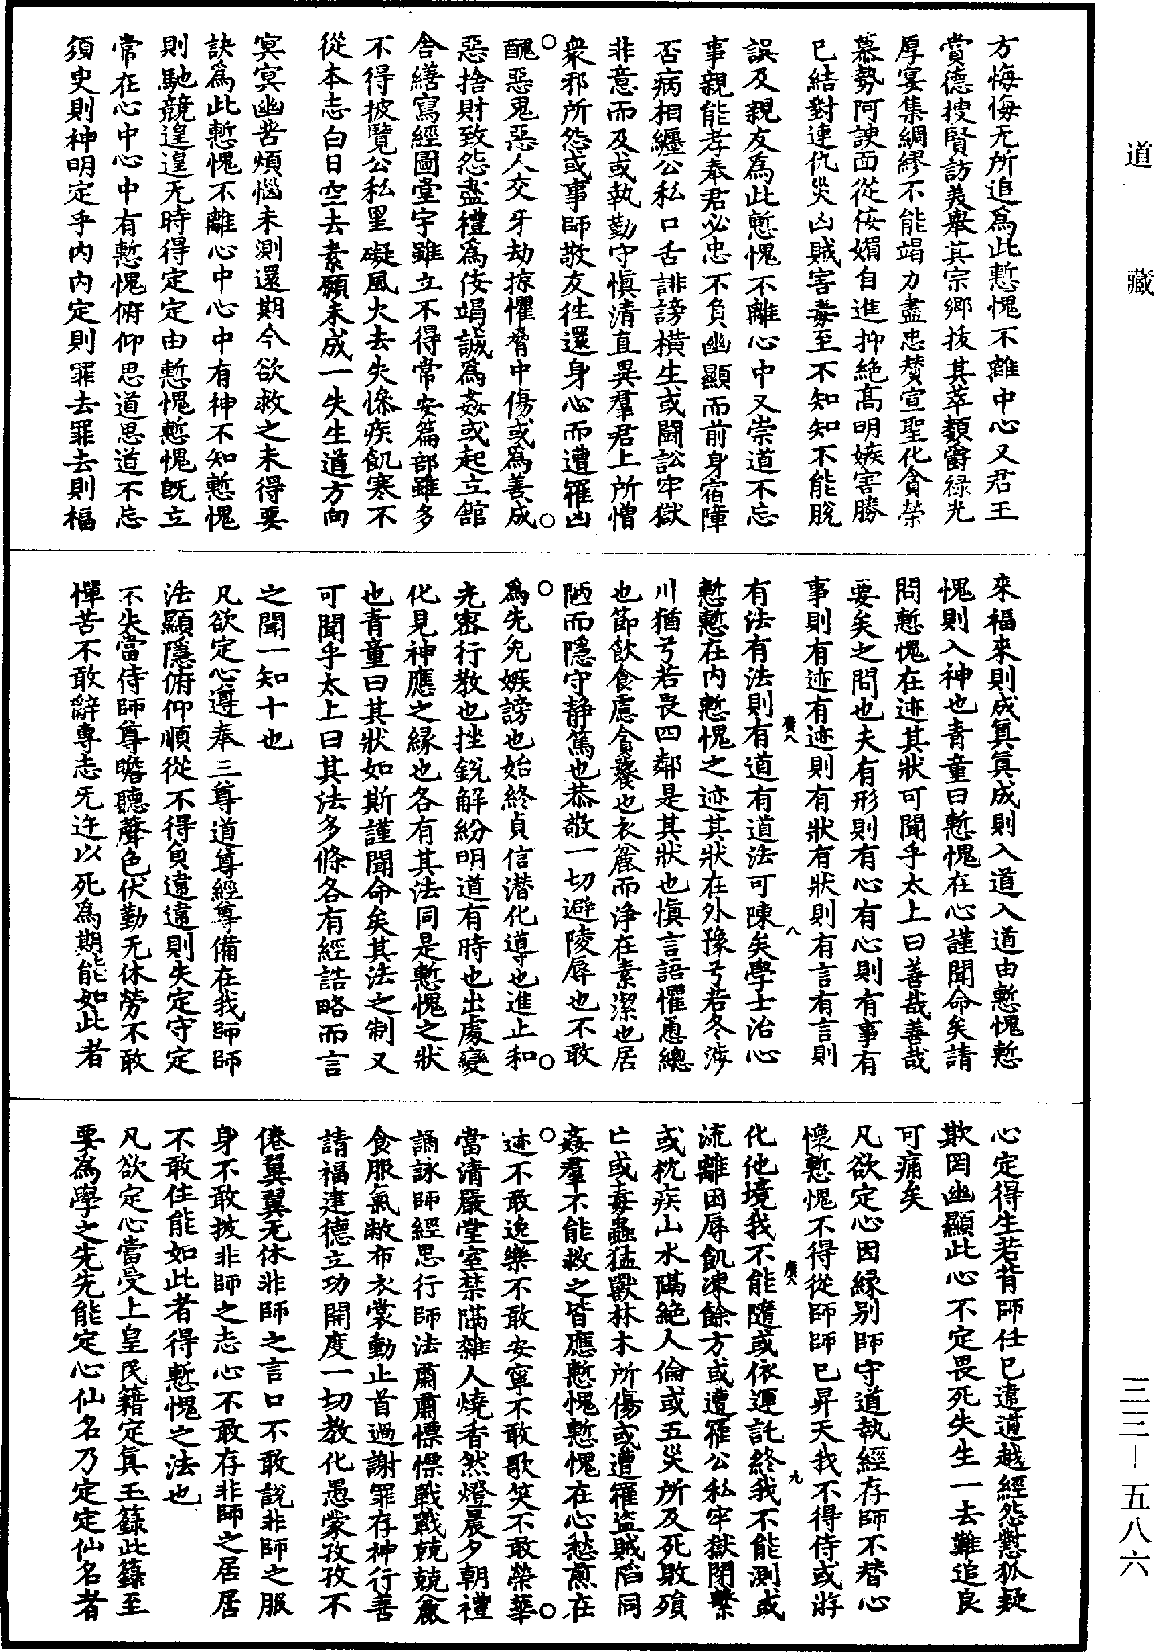 方悔悔无所追為此慙愧不離中心又君王
賞德搜賢訪美舉其宗鄉拔其萃類爵祿光
厚宴集綢繆不能竭力盡忠賛宣聖化貪榮
慕勢阿諛面從佞媚自進抑絶髙明嫉害勝
已結對連仇災凶賊害毒至不知知不能脫
誤及親友為此慙愧不離心中又崇道不忘
事親能孝奉君必忠不負幽顯而前身宿障
否病相纏公私口舌誹謗橫生或鬪訟牢獄
非意而及或執勤守慎清直異羣君上所憎
衆邪所怨或事師敬友往還身心而遭羅凶
醜惡鬼惡人交牙劫掠懼脅中傷或為善成
惡捨財致怨盡禮為佞竭誠為姦或起立舘
舎繕寫經圖堂宇雖立不得常安篇部雖多
不得披覽公私罣礙風火去失慘疾飢寒不
從本志白日空去素願未成一失生道方向
冥冥幽苦煩惱未測還期今欲救之未得要
訣為此慙愧不離心中心中有神不知慙愧
則馳競遑遑无時得定定由慙愧慙愧旣立
常在心中心中有慙愧俯仰思道思道不忘
須㬰則神明定乎内内定則罪去罪去則福
來福來則成眞眞成則入道入道由慙愧慙
愧則入神也青童曰慙愧在心謹聞命矣請
問慙愧在迹其狀可聞乎太上曰善哉善哉
要矣之問也夫有形則有心有心則有事有
事則有迹有迹則有狀有狀則有言有言則
有法有法則有道有道法可陳矣學士治心
慙慙在内慙愧之迹其狀在外豫兮若冬涉
川猶兮若畏四鄰是其狀也慎言語懼愆總
也節飲食慮貪饕也衣麤而淨在素潔也居
陋而隱守静篤也恭敬一切避陵辱也不敢
為先免嫉謗也始終貞信潜化導也進止和
光密行教也挫銳解紛明道有時也出處變
化見神應之緣也各有其法同是慙愧之狀
也青童曰其狀如斯謹聞命矣其法之制又
可聞乎太上曰其法多條各有經誥略而言
之聞一知十也
凡欲定心遵奉三尊道尊經尊備在我師師
法顯隱俯仰順從不得負違違則失定守定
不失當侍師尊瞻聽聲色伏勤无休勞不敢
憚苦不敢辭專志无迕以死為期能如此者
心定得生若背師任已違道越經怨懟狐疑
欺罔幽顯此心不定畏死失生一去難追良
可痛矣
凡欲定心因緣别師守道執經存師不替心
懷慙愧不得從師師已昇天我不得侍或游
化他境我不能隨或依運託終我不能測或
流離困辱飢凍餘方或遭羅公私牢獄閉繫
或枕疾山水隔絶人倫或五災所及死敗殞
亡或毒蟲猛獸林木所傷或遭羅盜賊陷同
姦羣不能救之皆應慙愧慙愧在心愁煎在
迹不敢逸樂不敢安寧不敢歌笑不敢榮華
當清嚴堂室禁隔雜人燒香然燈晨夕朝禮
誦詠師經思行師法肅肅慓慓戰戰兢兢麤
食服氣敝布衣裳動止首過謝罪存神行善
請福建德立功開度一切教化愚蒙孜孜不
倦翼翼无休非師之言口不敢說非師之服
身不敢披非師之志心不敢存非師之居居
不敢住能如此者得慙愧之法也
凡欲定心當受上皇民籍定真玉籙此籙至
要為學之先先能定心仙名乃定定仙名者
道藏
三三－五八六